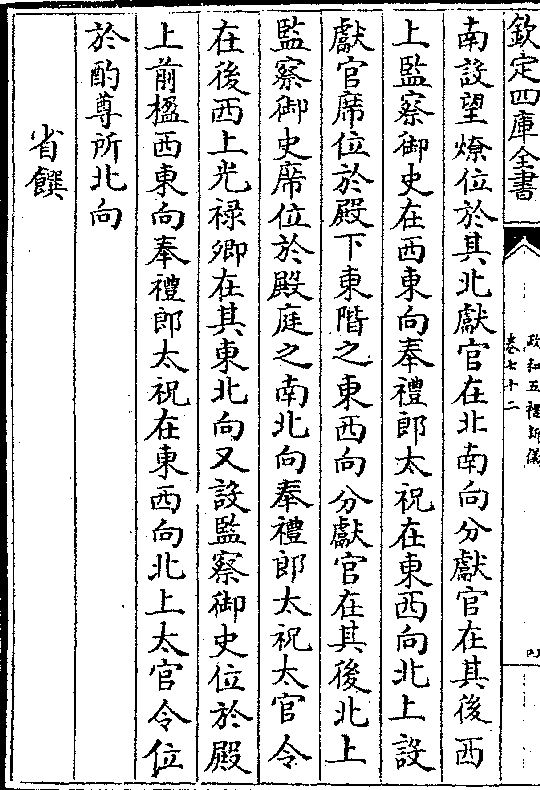 欽定四庫全書
政和五禮新儀
卷七十二
南設望燎位於其北獻官在北南向分獻官在其後西
上監察御史在西東向奉禮郎太祝在東西向北上設
獻官席位於殿下東階之東西向分獻官在其後北上
監察御史席位於殿庭之南北向奉禮郎太祝太官令
在後西上光禄卿在其東北向又設監察御史位於殿
上前楹西東向奉禮郎太祝在東西向北上太官令位
於酌尊所北向
省饌